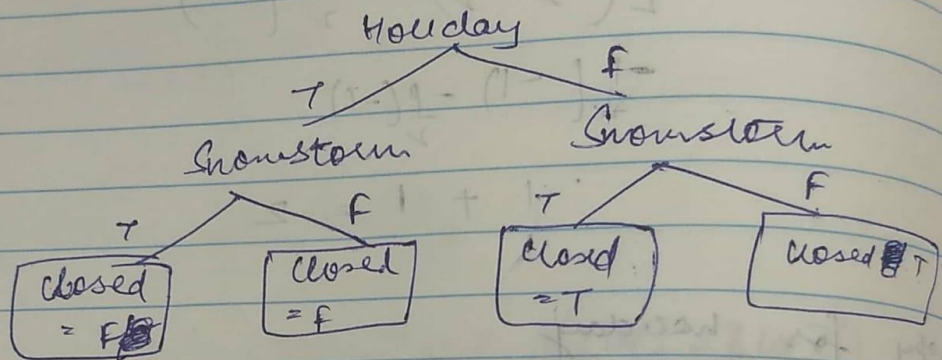 Holiday
T F
Snowstorm Snowstorm
T F T F
Closed Closed Closed Closed T
= F = F = T